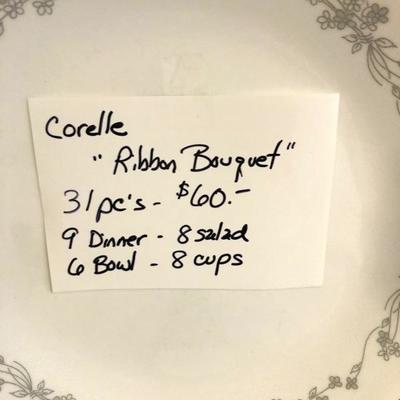 Corelle
"Ribbon Bouquet"
31pc's - $60.-
9 Dinner - 8 salad
6 Bowl - 8 cups